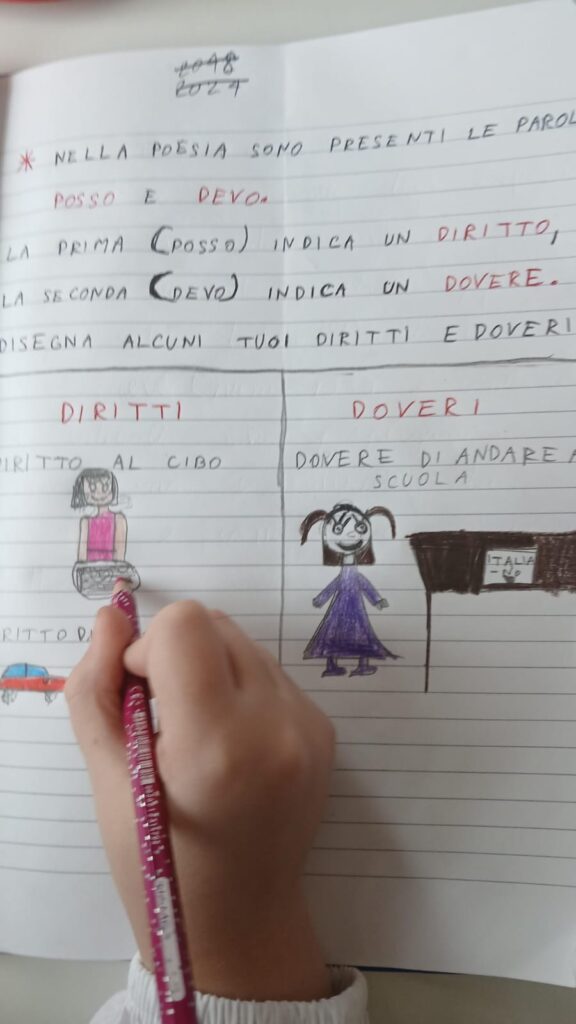 2048
2021
* NELLA POESIA SONO PRESENTI LE PAROL
POSSO E DEVO.
LA PRIMA (POSSO) INDICA UN DIRITTO,
LA SECONDA (DEVO) INDICA UN DOVERE.
DISEGNA ALCUNI TUOI DIRITTI E DOVERI
DIRITTI
DOVERI
IRITTO AL CIBO
DOVERE DI ANDARE A
SCUOLA
ITALIA
-NO
RITTO D